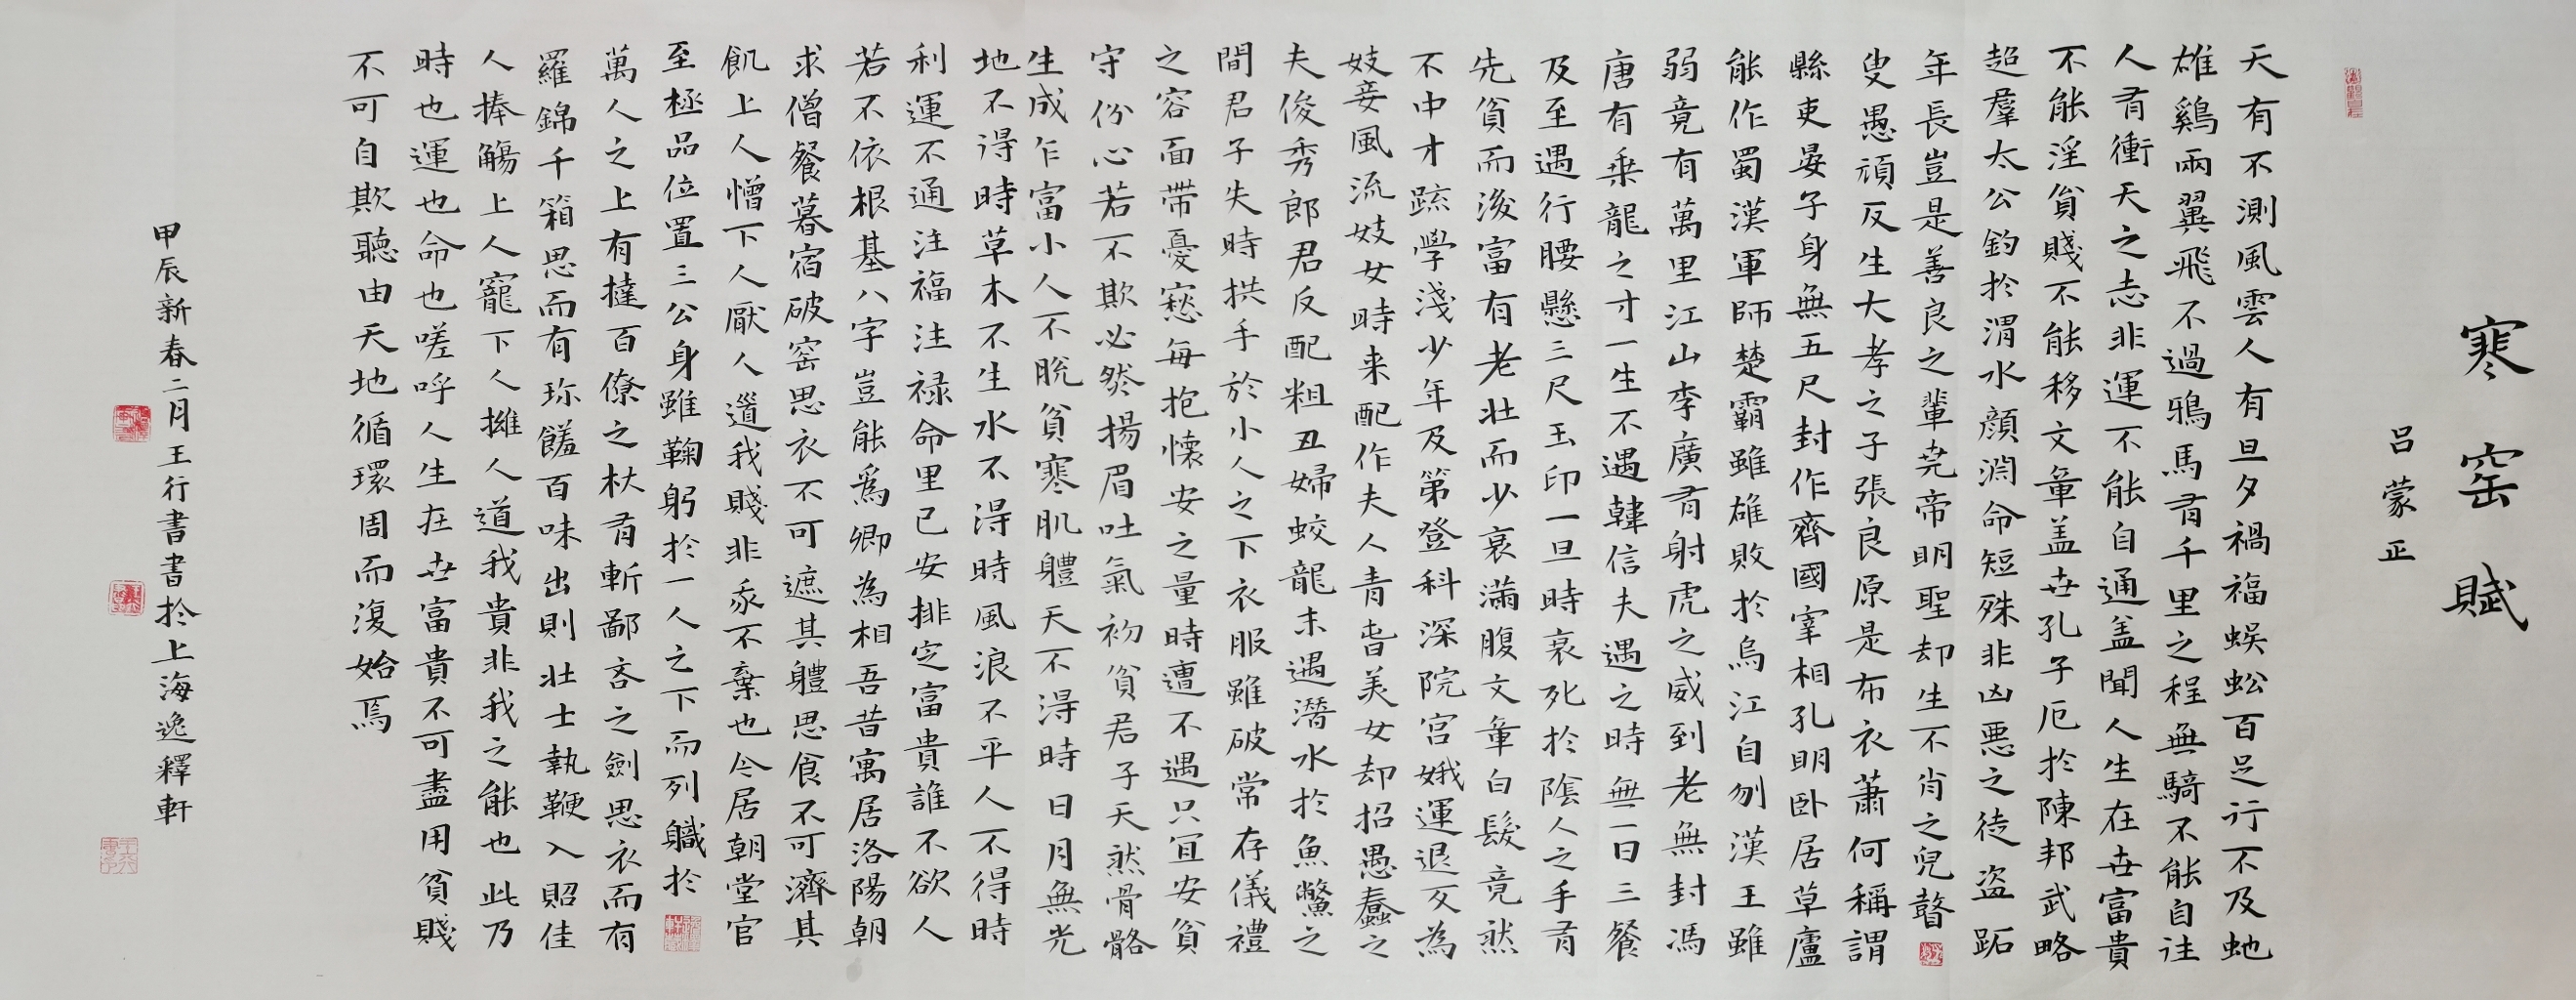 寒窑賦
呂蒙正
天有不測風雲人有旦夕禍福蜈蚣百足行不及虵
雄鷄兩翼飛不過鴉馬有千里之程無騎不能自往
人有衝天之志非運不能自通盖聞人生在世富貴
不能淫貧賤不能移文章盖世孔子厄於陳邦武略
超羣太公釣於渭水顔淵命短殊非凶悪之徒盗跖
年長豈是善良之輩尭帝明聖却生不肖之兒瞽
叟愚頑反生大孝之子張良原是布衣蕭何稱謂
縣吏晏子身無五尺封作齊國宰相孔明卧居草廬
能作蜀漢軍師楚霸雖雄敗於烏江自刎漢王雖
弱竟有萬里江山李廣有射虎之威到老無封馮
唐有乗龍之才一生不遇韓信夫遇之時無一日三餐
及至遇行腰懸三尺玉印一旦時衰死於陰人之手有
先貧而後富有老壮而少衰滿腹文章白髪竟然
不中才疏學淺少年及第登科深院宫娥運退反為
妓妾風流妓女時来配作夫人青春美女却招愚蠢之
夫俊秀郎君反配粗丑婦蛟龍未遇潜水於魚鱉之
間君子失時拱手於小人之下衣服雖破常存儀禮
之容面带憂愁每抱懐安之量時遭不遇只宜安貧
守份心若不欺必然揚眉吐氣初貧君子天然骨骼
生成乍富小人不脱貧寒肌體天不得時日月無光
地不得時草木不生水不得時風浪不平人不得時
利運不通注福注禄命里已安排定富貴誰不欲人
若不依根基八字豈能為卿為相吾昔寓居洛陽朝
求僧餐暮宿破窑思衣不可遮其體思食不可濟其
飢上人憎下人厭人道我賤非我不棄也今居朝堂官
至極品位置三公身雖鞠躬於一人之下而列軄於
萬人之上有撻百僚之杖有斬鄙吝之劍思衣而有
羅錦千箱思而有珎饈百味出則壮士執鞭入照佳
人捧觴上人寵下人擁人道我貴非我之能也此乃
時也運也命也嗟呼人生在世富貴不可盡用貧賤
不可自欺聽由天地循環周而復始焉
甲辰新春二月王行書書於上海逸釋軒